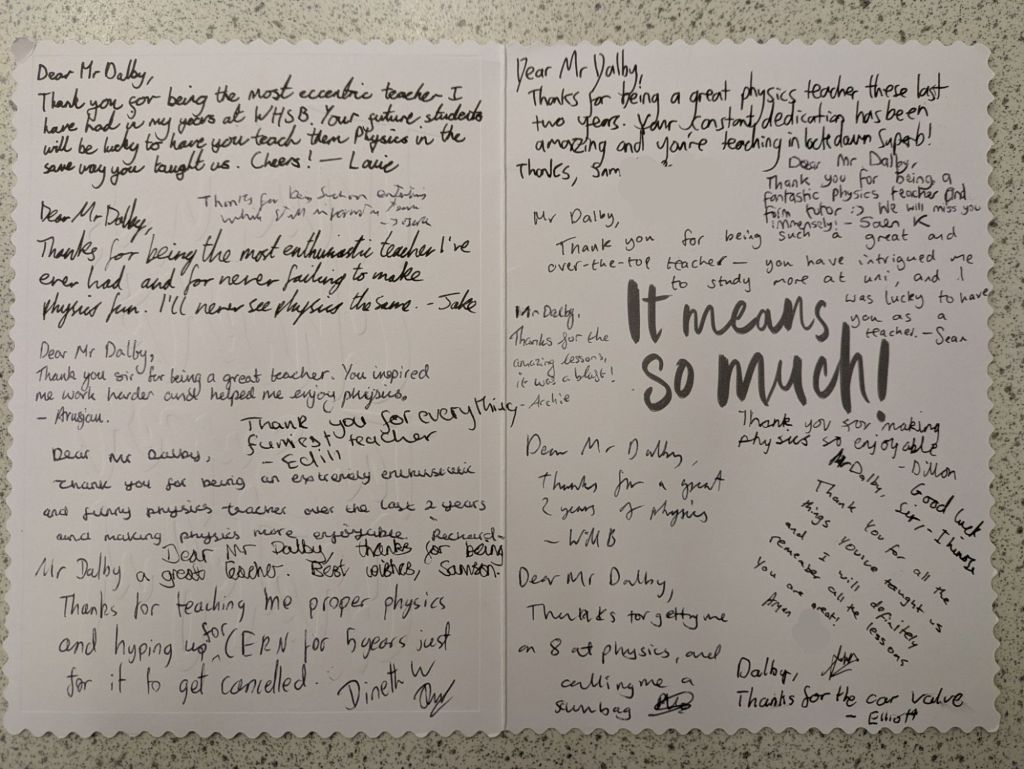 Dear Mr Dalby,
Thank you for being the most eccentric teacher I
have had in my years at WHSB. Your future students
will be lucky to have you teach them Physics in the
same way you taught us. Cheers! — Laurie
Thanks for being such an
Dear Mr Dalby,
Thanks for being the most enthusiastic teacher I've
ever had and for never failing to make
physics fun. I'll never see physics the same. - Jake
Dear Mr Dalby,
Thank you sir for being a great teacher. You inspired
me work harder and helped me enjoy physics.
- Arusjan.
Thank you for everything
funniest teacher
- Edill
Dear Mr Dalby,
Thank you for being an extremely enthusiastic
and funny physics teacher over the last 2 years
and making physics more enjoyable
Dear Mr Dalby, thanks for being
a great teacher. Best wishes, Samson.
Mr Dalby
Thanks for teaching me proper physics
and hyping up for CERN for 5 years just
for it to get cancelled.
Dineth W
Dear Mr Dalby,
Thanks for being a great physics teacher these last
two years. Your constant dedication has been
amazing and you're teaching in lockdown superb!
Thanks, Sam
Dear Mr Dalby,
Thank you for being a
fantastic physics teacher and
form tutor :) We will miss you
immensely! - Saen K
Mr Dalby,
Thank you for being such a great and
over-the-top teacher — you have intrigued me
to study more at uni, and I
was lucky to have
you as a
teacher. - Sean
It means
so much!
Mr Dalby.
Thanks for the
amazing lessons,
it was a blast!
- Archie
Thank you for making
physics so enjoyable
- Dillon
Dear Mr Dalby,
Thanks for a great
2 years of physics
- Will B
Good luck
Sir, -
Mr Dalby,
Thank you for all the
things you've taught us
and I will definitely
remember all the lessons
You are great!
Aryan
Dear Mr Dalby,
Thanks for getting me
an 8 at physics, and
calling me a
sunbag
Dalby,
Thanks for the car valve
- Elliott